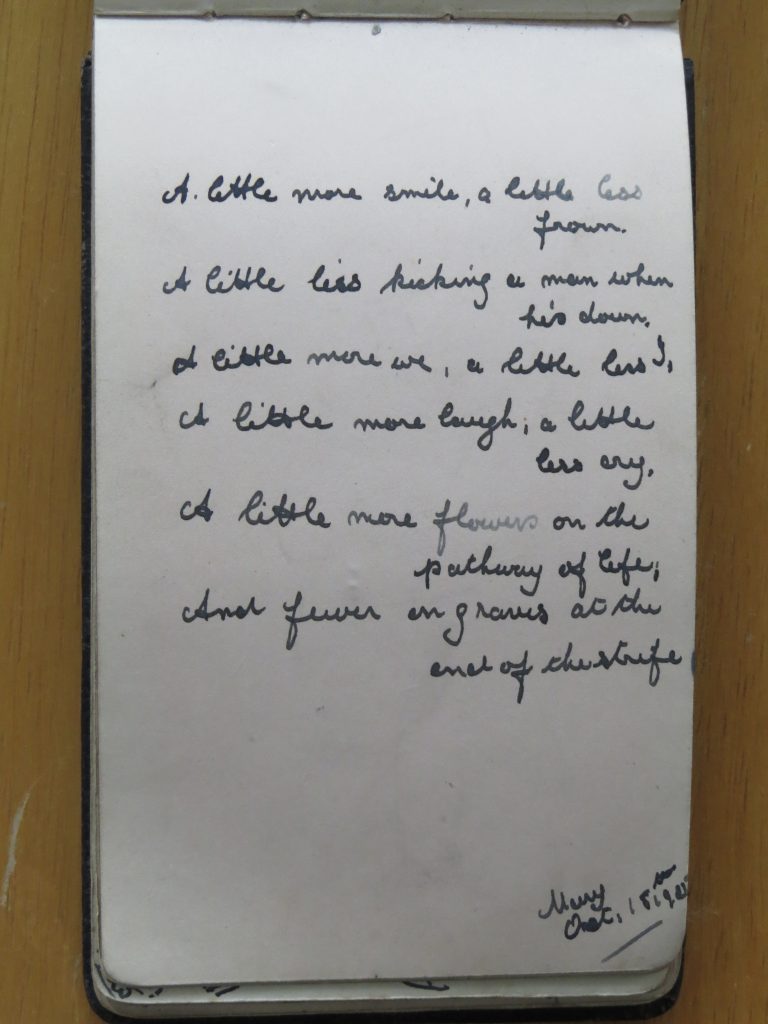 A. little more smile, a little less
frown.
A little less kicking a man when
he's down.
A little more we, a little less I,
A little more laugh, a little
less cry,
A little more flowers on the
pathway of life,
And fewer on graves at the
end of the strife
Mary
Oct, 18th